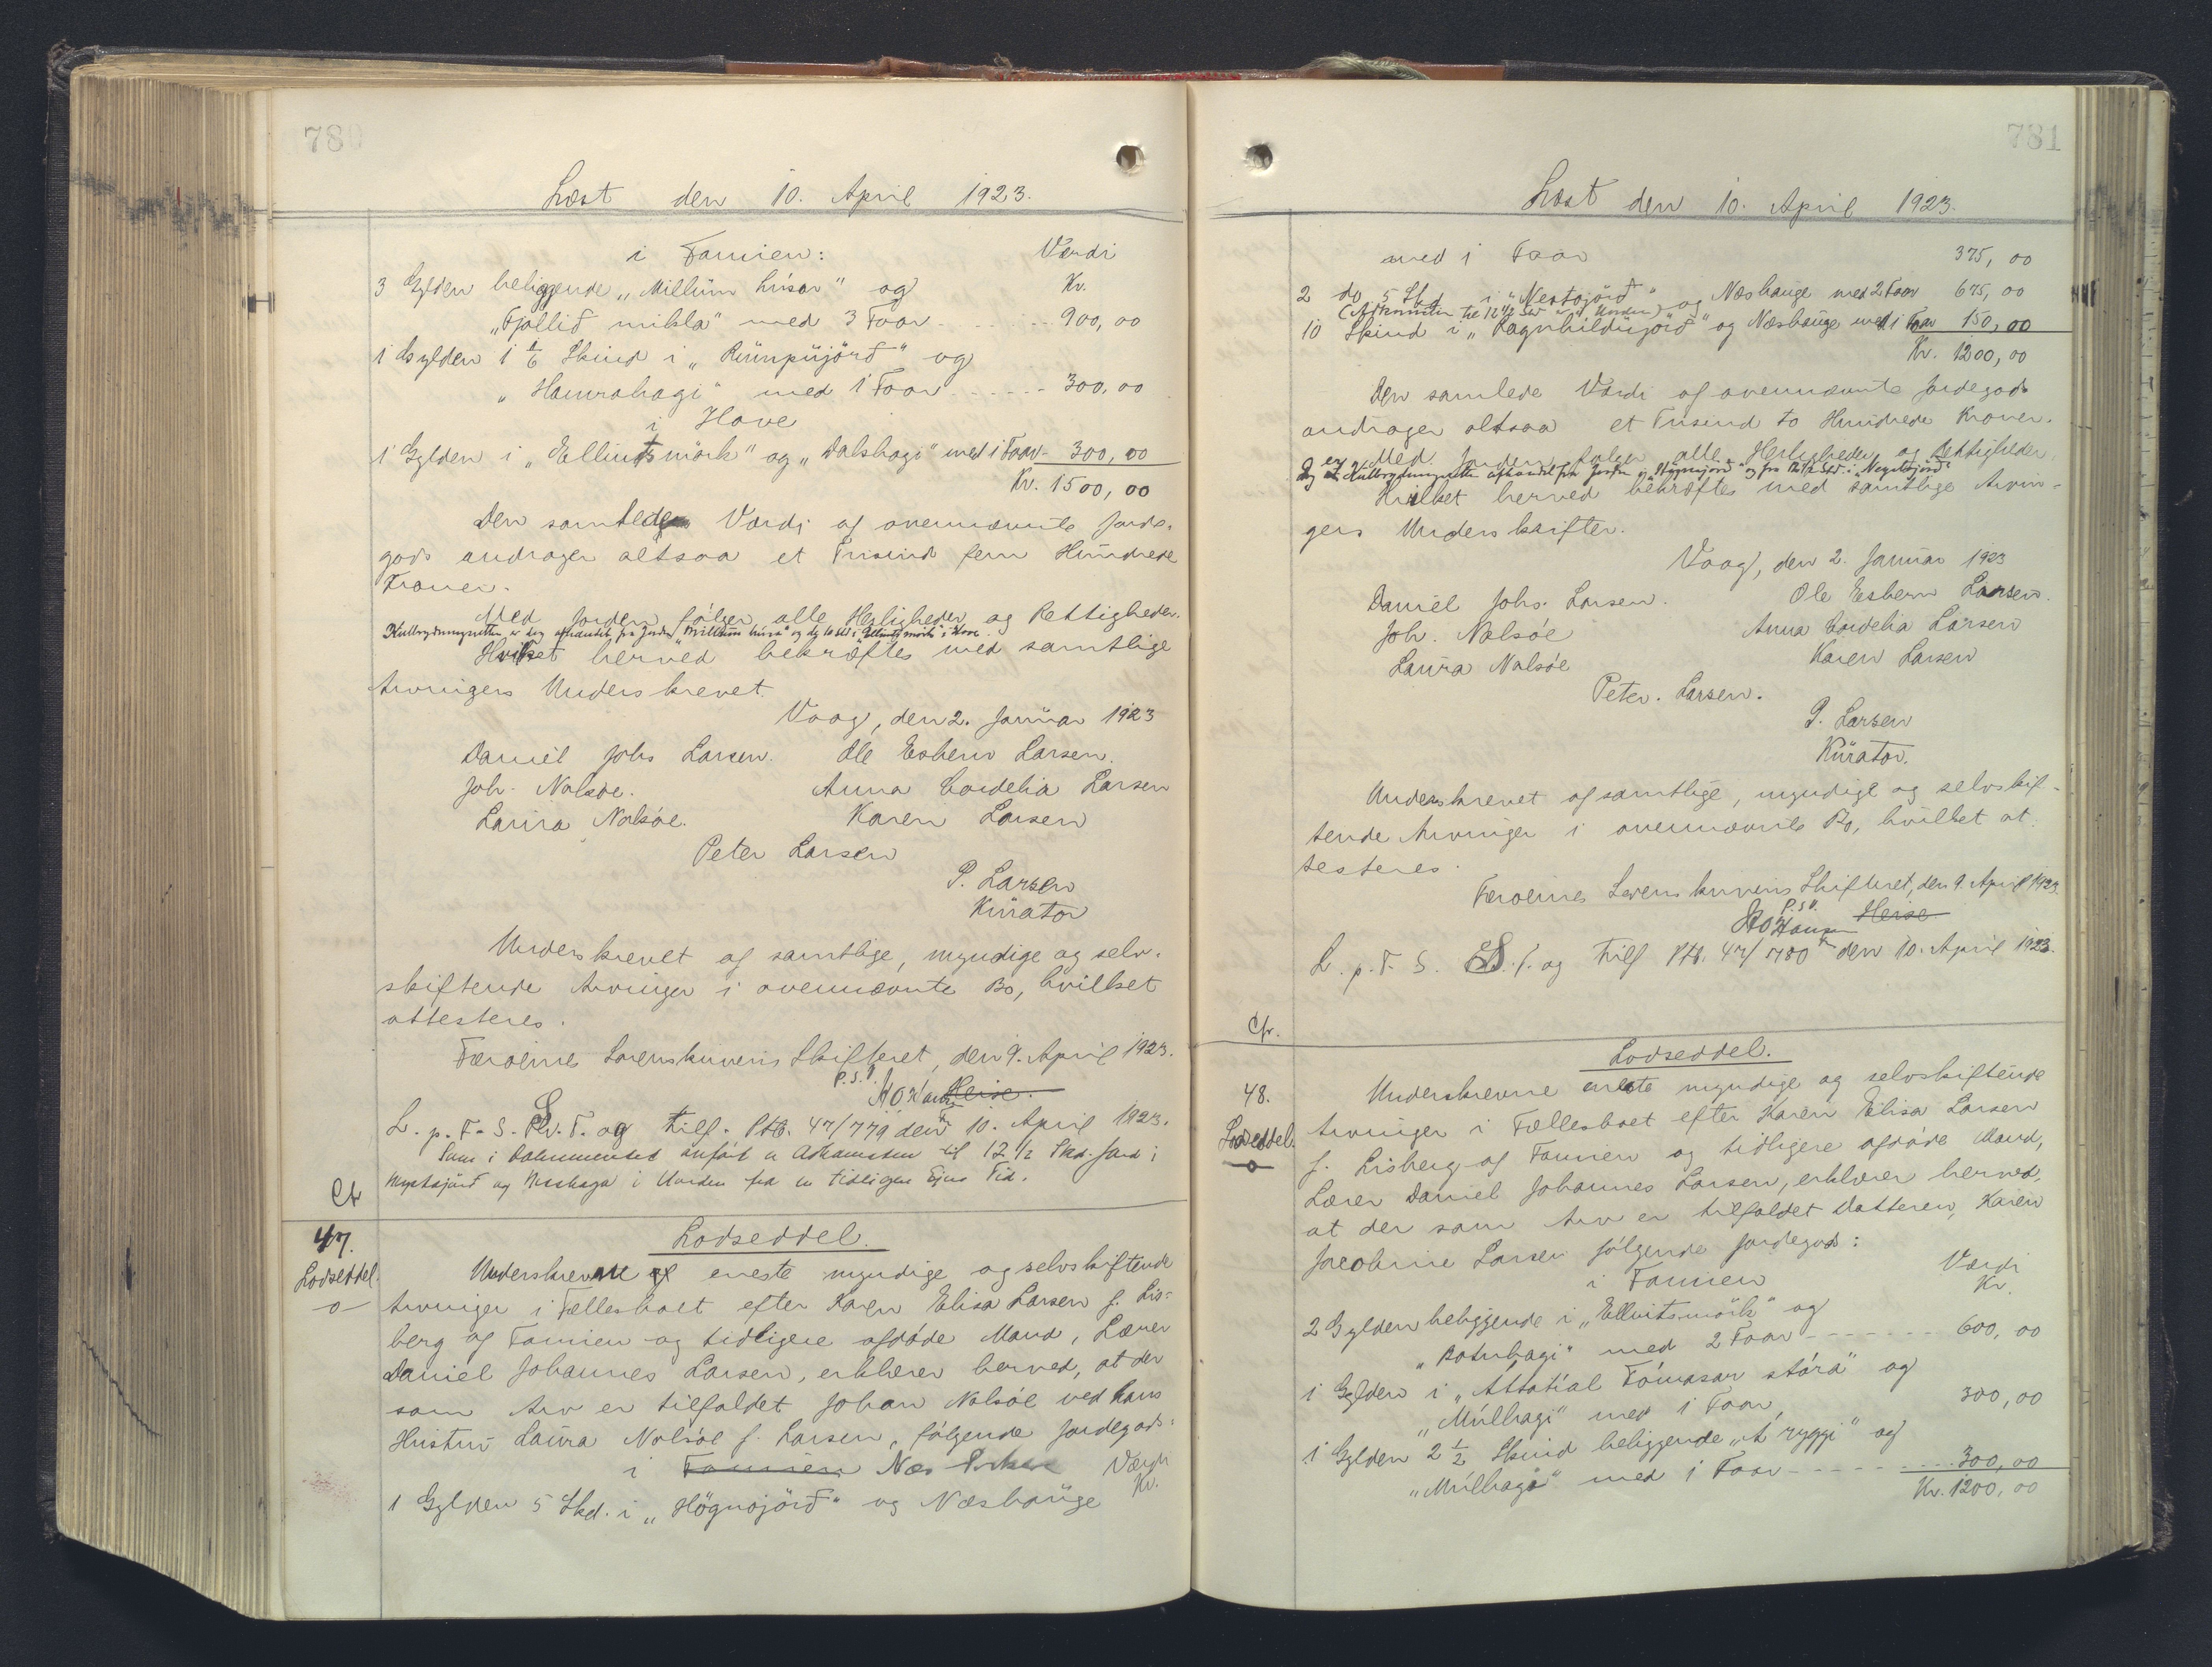 780
Læst den 10. April 1923.
i Famien:
Værdi
3 Gylden beliggende „Millum húsar" og
Kr.
„Fjallið mikla" med 3 Faar - - - - - 900,00
1 Gylden 1 1/6 Skind i „Rünpüjörð" og
„Hamrahagi" med 1 Faar - - - - - 300,00
i Hove
1 Gylden i „Ellintsmörk" og „Dalshagi" med 1 Faar - 300,00
Kr. 1500,00
Den samlede Værdi af ovennævnte Jorde-
gods andrager altsaa et Tusind fem Hundrede
Kroner.
Med Jorden følger alle Herligheder og Rettigheder.
Kulbrydningsretten er dog afhændet fra Jorden „Millum húsa" og fra 10 Skd i „Ellintsmörk" i Hove.
Hvilket herved bekræftes med samtlige
Arvingers Underskrevet.
Vaag, den 2. Januar 1923
Daniel Johs Larsen. Ole Esbern Larsen.
Joh. Nolsøe. Anna Cordelia Larsen
Laura Nolsøe. Karen Larsen
Peter Larsen
P. Larsen
Kurator
Underskrevet af samtlige, myndige og selv-
skiftende Arvinger i ovennævnte Bo, hvilket
attesteres.
Færøernes Sorenskriveris Skifteret, den 9. April 1923.
P.S.V.
Heise.
L. p. F. S. S. T. og Tilf. Ptb. 47/779 den 10. April 1923.
Som i Dokumentet anført er Adkomsten til 12 1/2 Skd. Jord i
og Neshaga i fra en tidligere Ejers Tid.
Cfr
47.
Lodseddel.
-o-
Lodseddel.
Underskrevne eneste myndige og selvskiftende
Arvinger i Fællesboet efter Karen Elisa Larsen f. Lis-
berg af Famien og tidligere afdøde Mand, Lærer
Daniel Johannes Larsen, erklærer herved, at der
som Arv er tilfaldet Johan Nolsöe ved hans
Hustru Laura Nolsöe f. Larsen, følgende Jordegods:
i Famien Næs
Værdi
1 Gylden 5 Skd. i „Högnojörð" og Næshauge
Kr.
781
Læst den 10. April 1923.
med 1 Faar 375,00
2 do 5 Skd i „Nestojörð" og Næshauge med 2 Faar 675,00
(Adkomsten til 12 1/2 Skd)
10 Skind i „Ragnhildüjörð" og Næshauge med 1 Faar 150,00
Kr. 1200,00
Den samlede Værdi af ovennævnte Jordegods
andrager altsaa et Tusind to Hundrede Kroner.
Med Jorden følger alle Herligheder og Rettigheder,
dog er Kulbrydningsretten afhændet fra Jorden i „Högnojörð" og fra 12 1/2 Skd. i „Negstojörð"
Hvilket herved bekræftes med samtlige Arvin-
gers Underskrifter.
Vaag, den 2. Januar 1923
Daniel Johs. Larsen. Ole Esbern Larsen.
Joh. Nolsöe Anna Cordelia Larsen
Laura Nolsöe Karen Larsen
Peter. Larsen.
P. Larsen
Kurator.
Underskrevet af samtlige, myndige og selvskif-
tende Arvinger i ovennævnte Bo, hvilket at-
testeres.
Færøernes Sorenskriveris Skifteret, den 9. April 1923.
P.S.V.
Heise
L. p. F. S. og Tilf Ptb. 47/780 den 10. April 1923.
Cfr.
48.
Lodseddel.
-o-
Lodseddel.
Underskrevne eneste myndige og selvskiftende
Arvinger i Fællesboet efter Karen Elisa Larsen
f. Lisberg af Famien og tidligere afdøde Mand,
Lærer Daniel Johannes Larsen, erklærer herved,
at der som Arv er tilfaldet Datteren, Karen
Jacobine Larsen følgende Jordegods:
i Famien
Værdi
Kr.
2 Gylden beliggende i „Ellvitsmörk" og
„Botnhagi" med 2 Faar - - - - - - - 600,00
1 Gylden i „Attatial Tómasar stóra" og
„Múlhagi" med 1 Faar, 300,00
1 Gylden 2 1/2 Skind beliggende „Á ryggi" og
„Múlhagi" med 1 Faar - - - - - 300,00
Kr. 1200,00